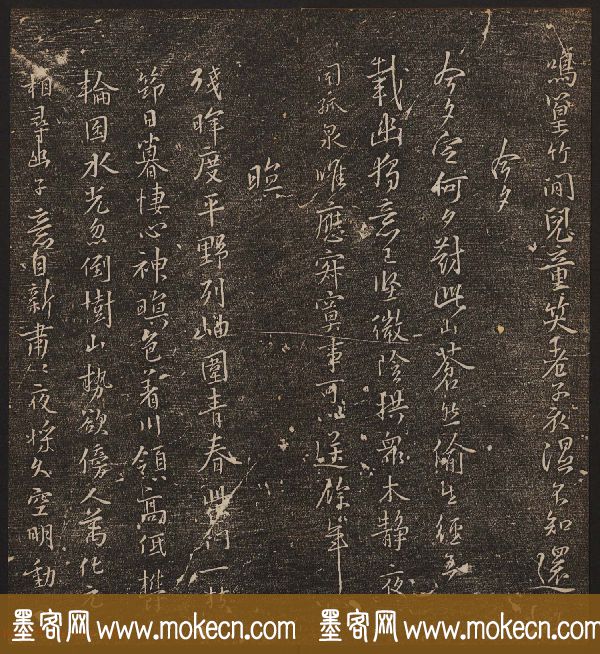 鳴篁竹間兒童笑老子衣濕不知還
今夕
今夕定何夕對此山蒼然偷生經五
載幽獨意已堅微陰拱衆木靜夜
聞孤泉唯應寂寞事可以送餘年
暝
殘暉度平野列岫圍青春柴門一枝
筇日暮棲心神暝色著川嶺高低鬱
輪囷水光忽倒樹山勢欲傍人萬化元
相尋幽子意自新肅肅夜將久空明動
墨客网 www.mokecn.com 墨客网 www.mokecn.com